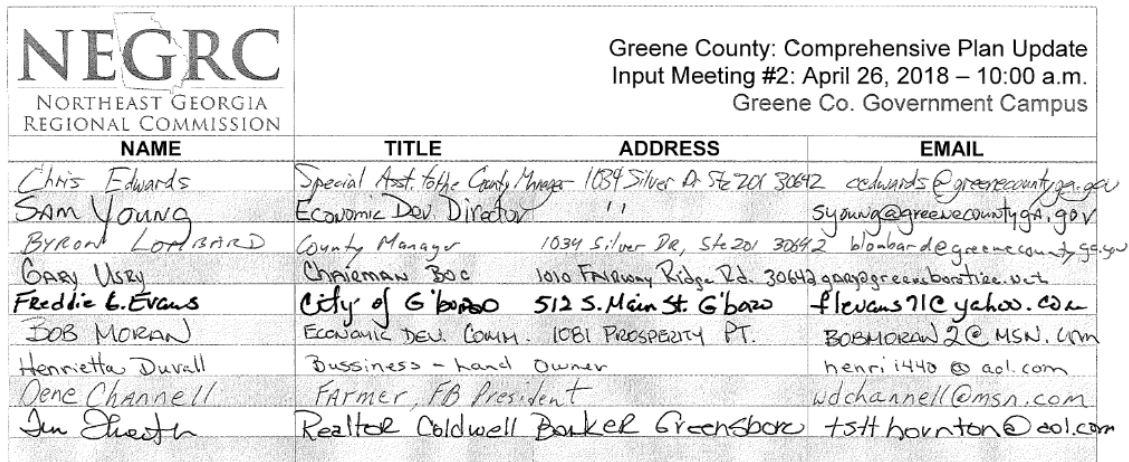 NEGRC
NORTHEAST GEORGIA
REGIONAL COMMISSION
Greene County: Comprehensive Plan Update
Input Meeting #2: April 26, 2018 – 10:00 a.m.
Greene Co. Government Campus
NAME TITLE ADDRESS EMAIL
Chris Edwards Special Asst. to the County Manager 1034 Silver Dr Ste 201 30642 cedwards@greenecountyga.gov
SAM YOUNG Economic Dev. Director '' syoung@greenecountyGA.gov
BYRON LOMBARD County Manager 1034 Silver DR, Ste 201 30642 blombard@greenecountyga.gov
GARY USRY CHAIRMAN BOC 1010 FAIRWAY Ridge Rd. 30642 gary@greensborotire.net
Freddie L. Evans City of G'boro 512 S. Main St. G'boro flevans71@yahoo.com
BOB MORAN ECONOMIC DEV. COMM. 1081 PROSPERITY PT. BOBMORAN2@MSN.COM
Henrietta Duvall Bussiness - Land Owner henri1440@aol.com
Dene Channell Farmer, FB President wdchannell@msn.com
Realtor Coldwell Banker Greensboro tstthornton@aol.com